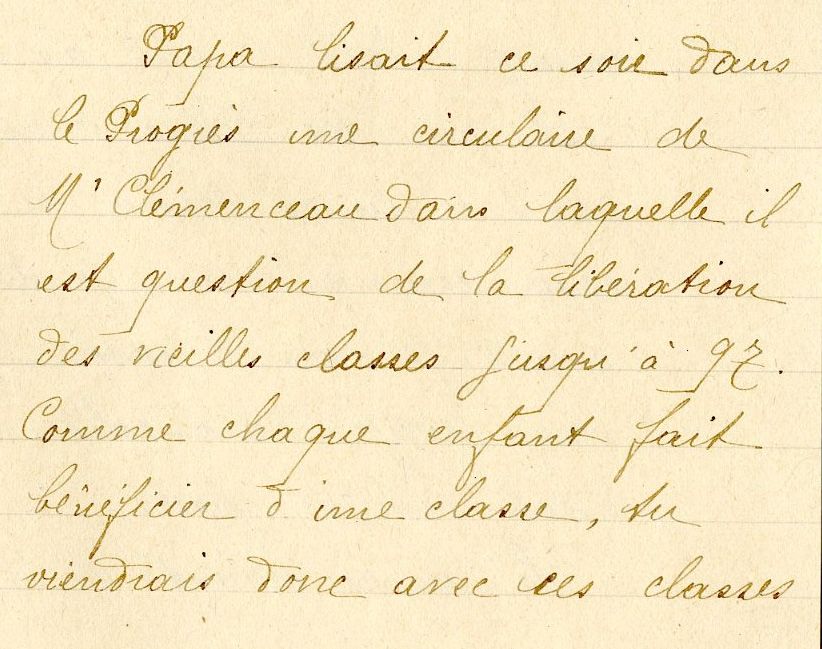 Papa lisait ce soir dans
le Progrès une circulaire de
Mr Clémenceau dans laquelle il
est question de la libération
des vieilles classes jusqu'à 97.
Comme chaque enfant fait
bénéficier d'une classe, tu
viendrais donc avec ces classes